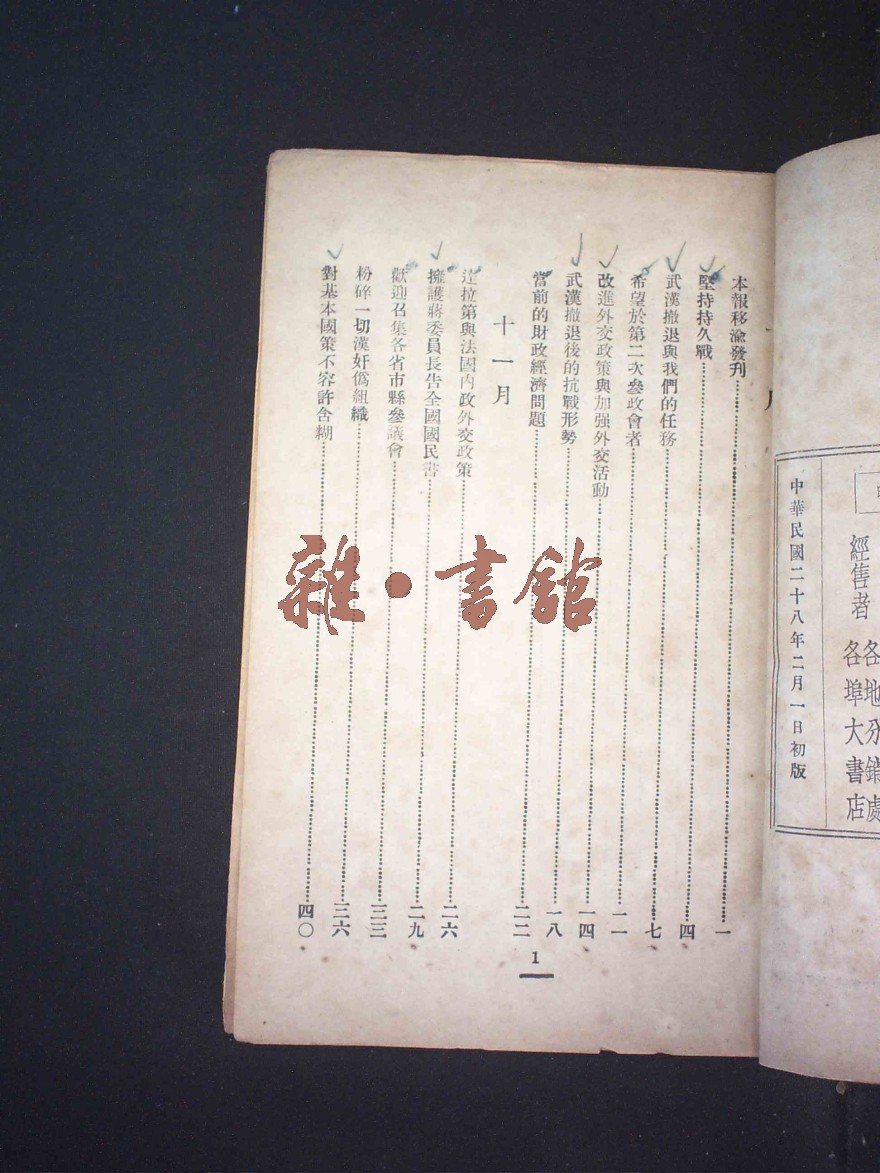 經售者
各地分銷處
各埠大書店
中華民國二十八年二月一日初版
本報移渝發刊……一
堅持持久戰……四
武漢撤退與我們的任務……七
希望於第二次參政會者……一一
改進外交政策與加强外交活動……一四
武漢撤退後的抗戰形勢……一八
當前的財政經濟問題……二二
十一月
達拉第與法國內政外交政策……二六
擁護蔣委員長告全國國民書……二九
歡迎召集各省市縣參議會……三三
粉碎一切漢奸僞組織……三六
對基本國策不容許含糊……四〇
1
雜·書館